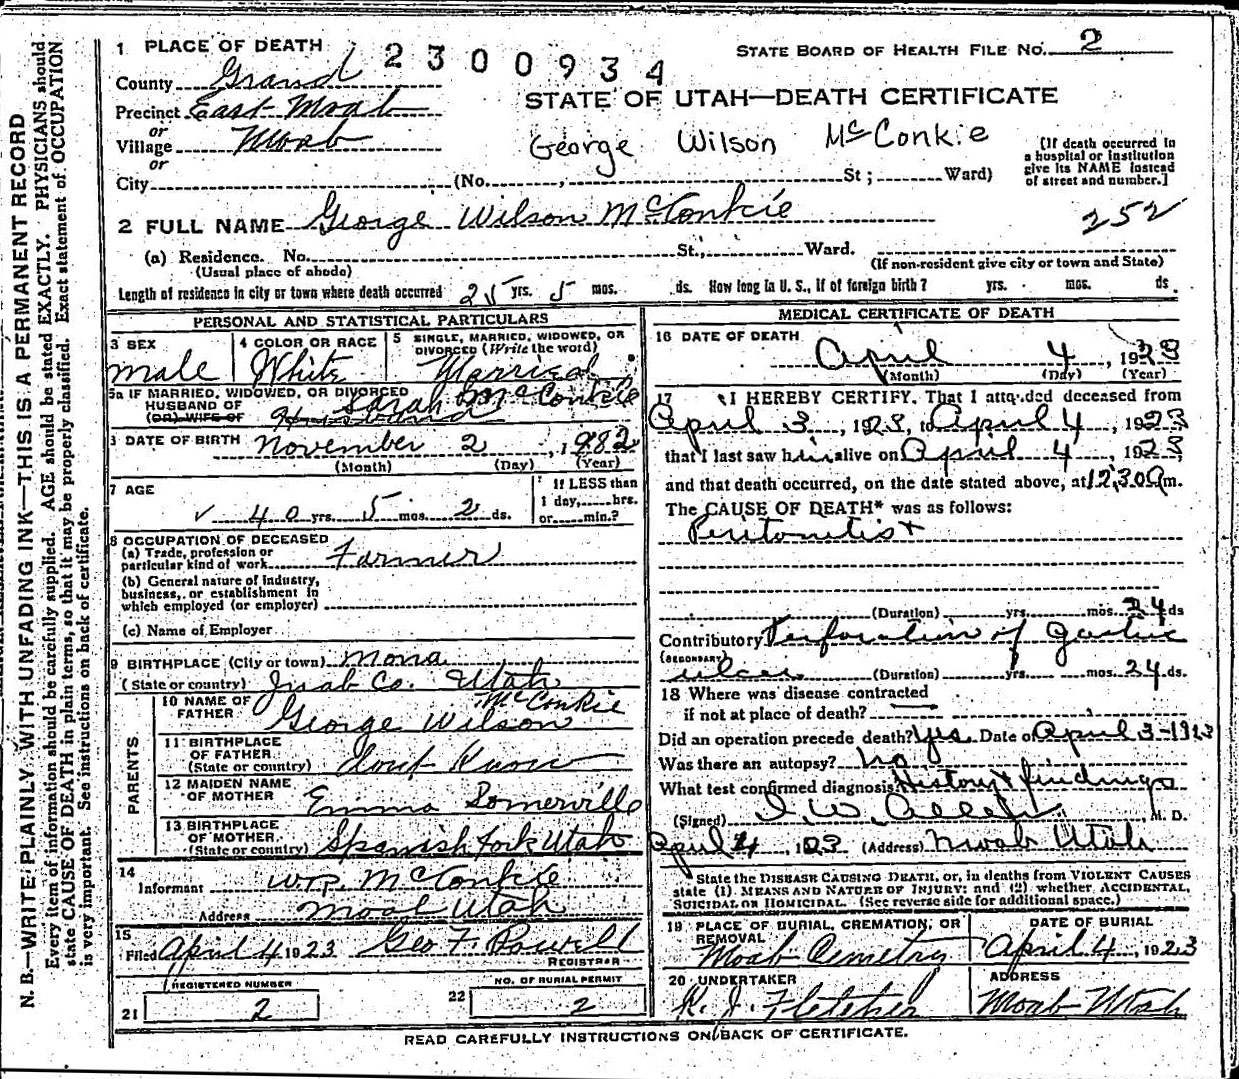 1 PLACE OF DEATH
2300934
STATE BOARD OF HEALTH FILE No. 2
County Grand
STATE OF UTAH—DEATH CERTIFICATE
Precinct East Moab
or
Village Moab
George Wilson McConkie
or
City (No. , St ; Ward)
[If death occurred in
a hospital or institution
give its NAME instead
of street and number.]
2 FULL NAME George Wilson McConkie
252
(a) Residence. No. St., Ward.
(Usual place of abode)
(If non-resident give city or town and State)
Length of residence in city or town where death occurred 25 yrs. 5 mos. ds. How long in U. S., if of foreign birth? yrs. mos. ds.
PERSONAL AND STATISTICAL PARTICULARS
3 SEX
male
4 COLOR OR RACE
White
5 SINGLE, MARRIED, WIDOWED, OR
DIVORCED (Write the word)
Married
5a IF MARRIED, WIDOWED, OR DIVORCED
HUSBAND OF
(OR) WIFE OF
Sarah McConkie
Husband
6 DATE OF BIRTH November 2, 1882
(Month) (Day) (Year)
7 AGE
40 yrs. 5 mos. 2 ds.
If LESS than
1 day, hrs.
or min.?
8 OCCUPATION OF DECEASED
(a) Trade, profession or
particular kind of work Farmer
(b) General nature of industry,
business, or establishment in
which employed (or employer)
(c) Name of Employer
9 BIRTHPLACE (City or town) Mona
(State or country) Juab Co. Utah
PARENTS
10 NAME OF
FATHER George Wilson McConkie
11 BIRTHPLACE
OF FATHER
(State or country) Dont Know
12 MAIDEN NAME
OF MOTHER Emma Somerville
13 BIRTHPLACE
OF MOTHER
(State or country) Spanish Fork Utah
14
Informant McConkie
Address Moab Utah
15
Filed April 4 1923 Geo F. Powell
REGISTRAR
REGISTERED NUMBER
21 2
NO. OF BURIAL PERMIT
22 2
MEDICAL CERTIFICATE OF DEATH
16 DATE OF DEATH
April 4, 1923
(Month) (Day) (Year)
17 I HEREBY CERTIFY, That I attended deceased from
April 3, 1923, to April 4, 1923
that I last saw him alive on April 4, 1923,
and that death occurred, on the date stated above, at 12,30 a m.
The CAUSE OF DEATH* was as follows:
Peritonetis
(Duration) yrs. mos. 24 ds
Contributory Perforation of gastric
(SECONDARY)
ulcer (Duration) yrs. mos. 24 ds.
18 Where was disease contracted
if not at place of death?
Did an operation precede death? Yes. Date of April 3-1923
Was there an autopsy? No
What test confirmed diagnosis? History & findings
(Signed) I. W. Allen, M. D.
April 4, 1923 (Address) Moab Utah
State the DISEASE CAUSING DEATH, or, in deaths from VIOLENT CAUSES
state (1) MEANS AND NATURE OF INJURY: and (2) whether ACCIDENTAL,
SUICIDAL OR HOMICIDAL. (See reverse side for additional space.)
19 PLACE OF BURIAL, CREMATION, OR
REMOVAL
Moab Cemetry
DATE OF BURIAL
April 4, 1923
20 UNDERTAKER
R. J. Fletcher
ADDRESS
Moab Utah
READ CAREFULLY INSTRUCTIONS ON BACK OF CERTIFICATE.
N. B.—WRITE PLAINLY, WITH UNFADING INK—THIS IS A PERMANENT RECORD
Every item of information should be carefully supplied. AGE should be stated EXACTLY. PHYSICIANS should
state CAUSE OF DEATH in plain terms, so that it may be properly classified. Exact statement of OCCUPATION
is very important. See instructions on back of certificate.